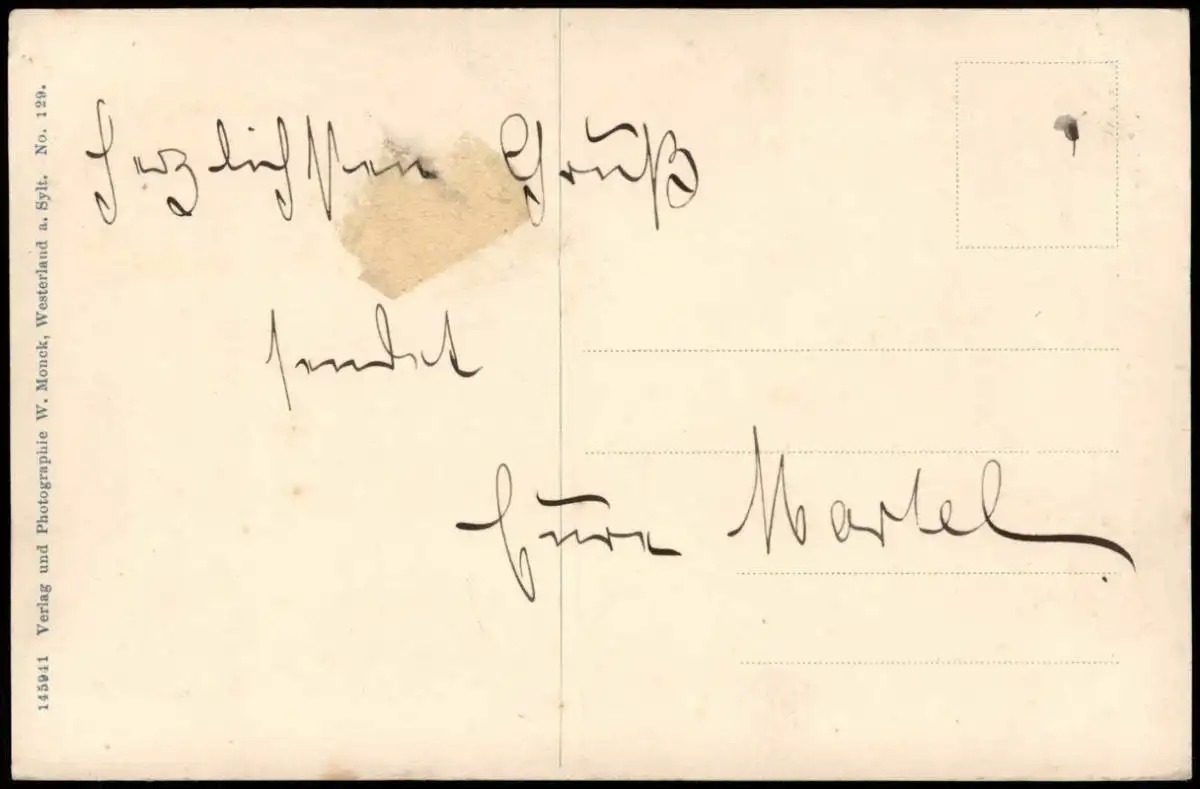 Herzlichsten Gruß
sendet
Eure Martel.
145941 Verlag und Photographie W. Monck, Westerland a. Sylt. No. 129.